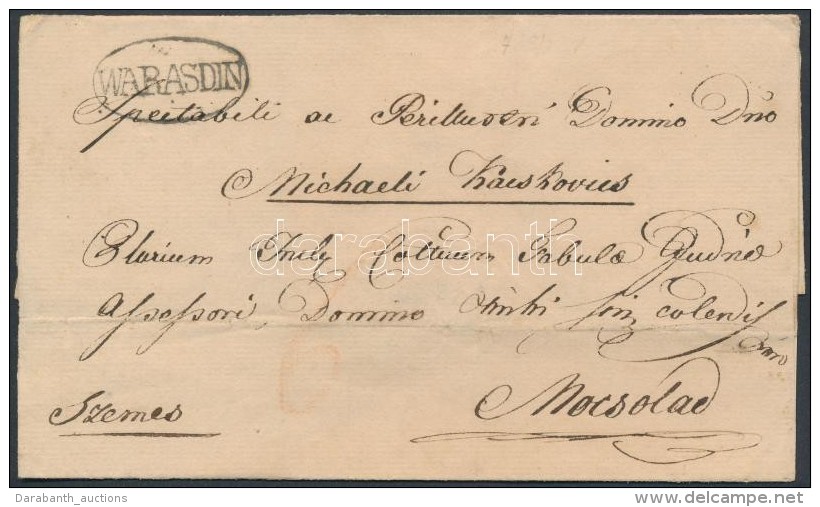 WARASDIN
Spectabili ac Perillustri Domino Dno
Michaeli Kacskovics
Plurium Inclyt Cottuum Tabulæ Judriæ
Assessori, Domino colendis
simo
Szemes
Mocsolad
darabanth
Darabanth_auctions
delcampe.net